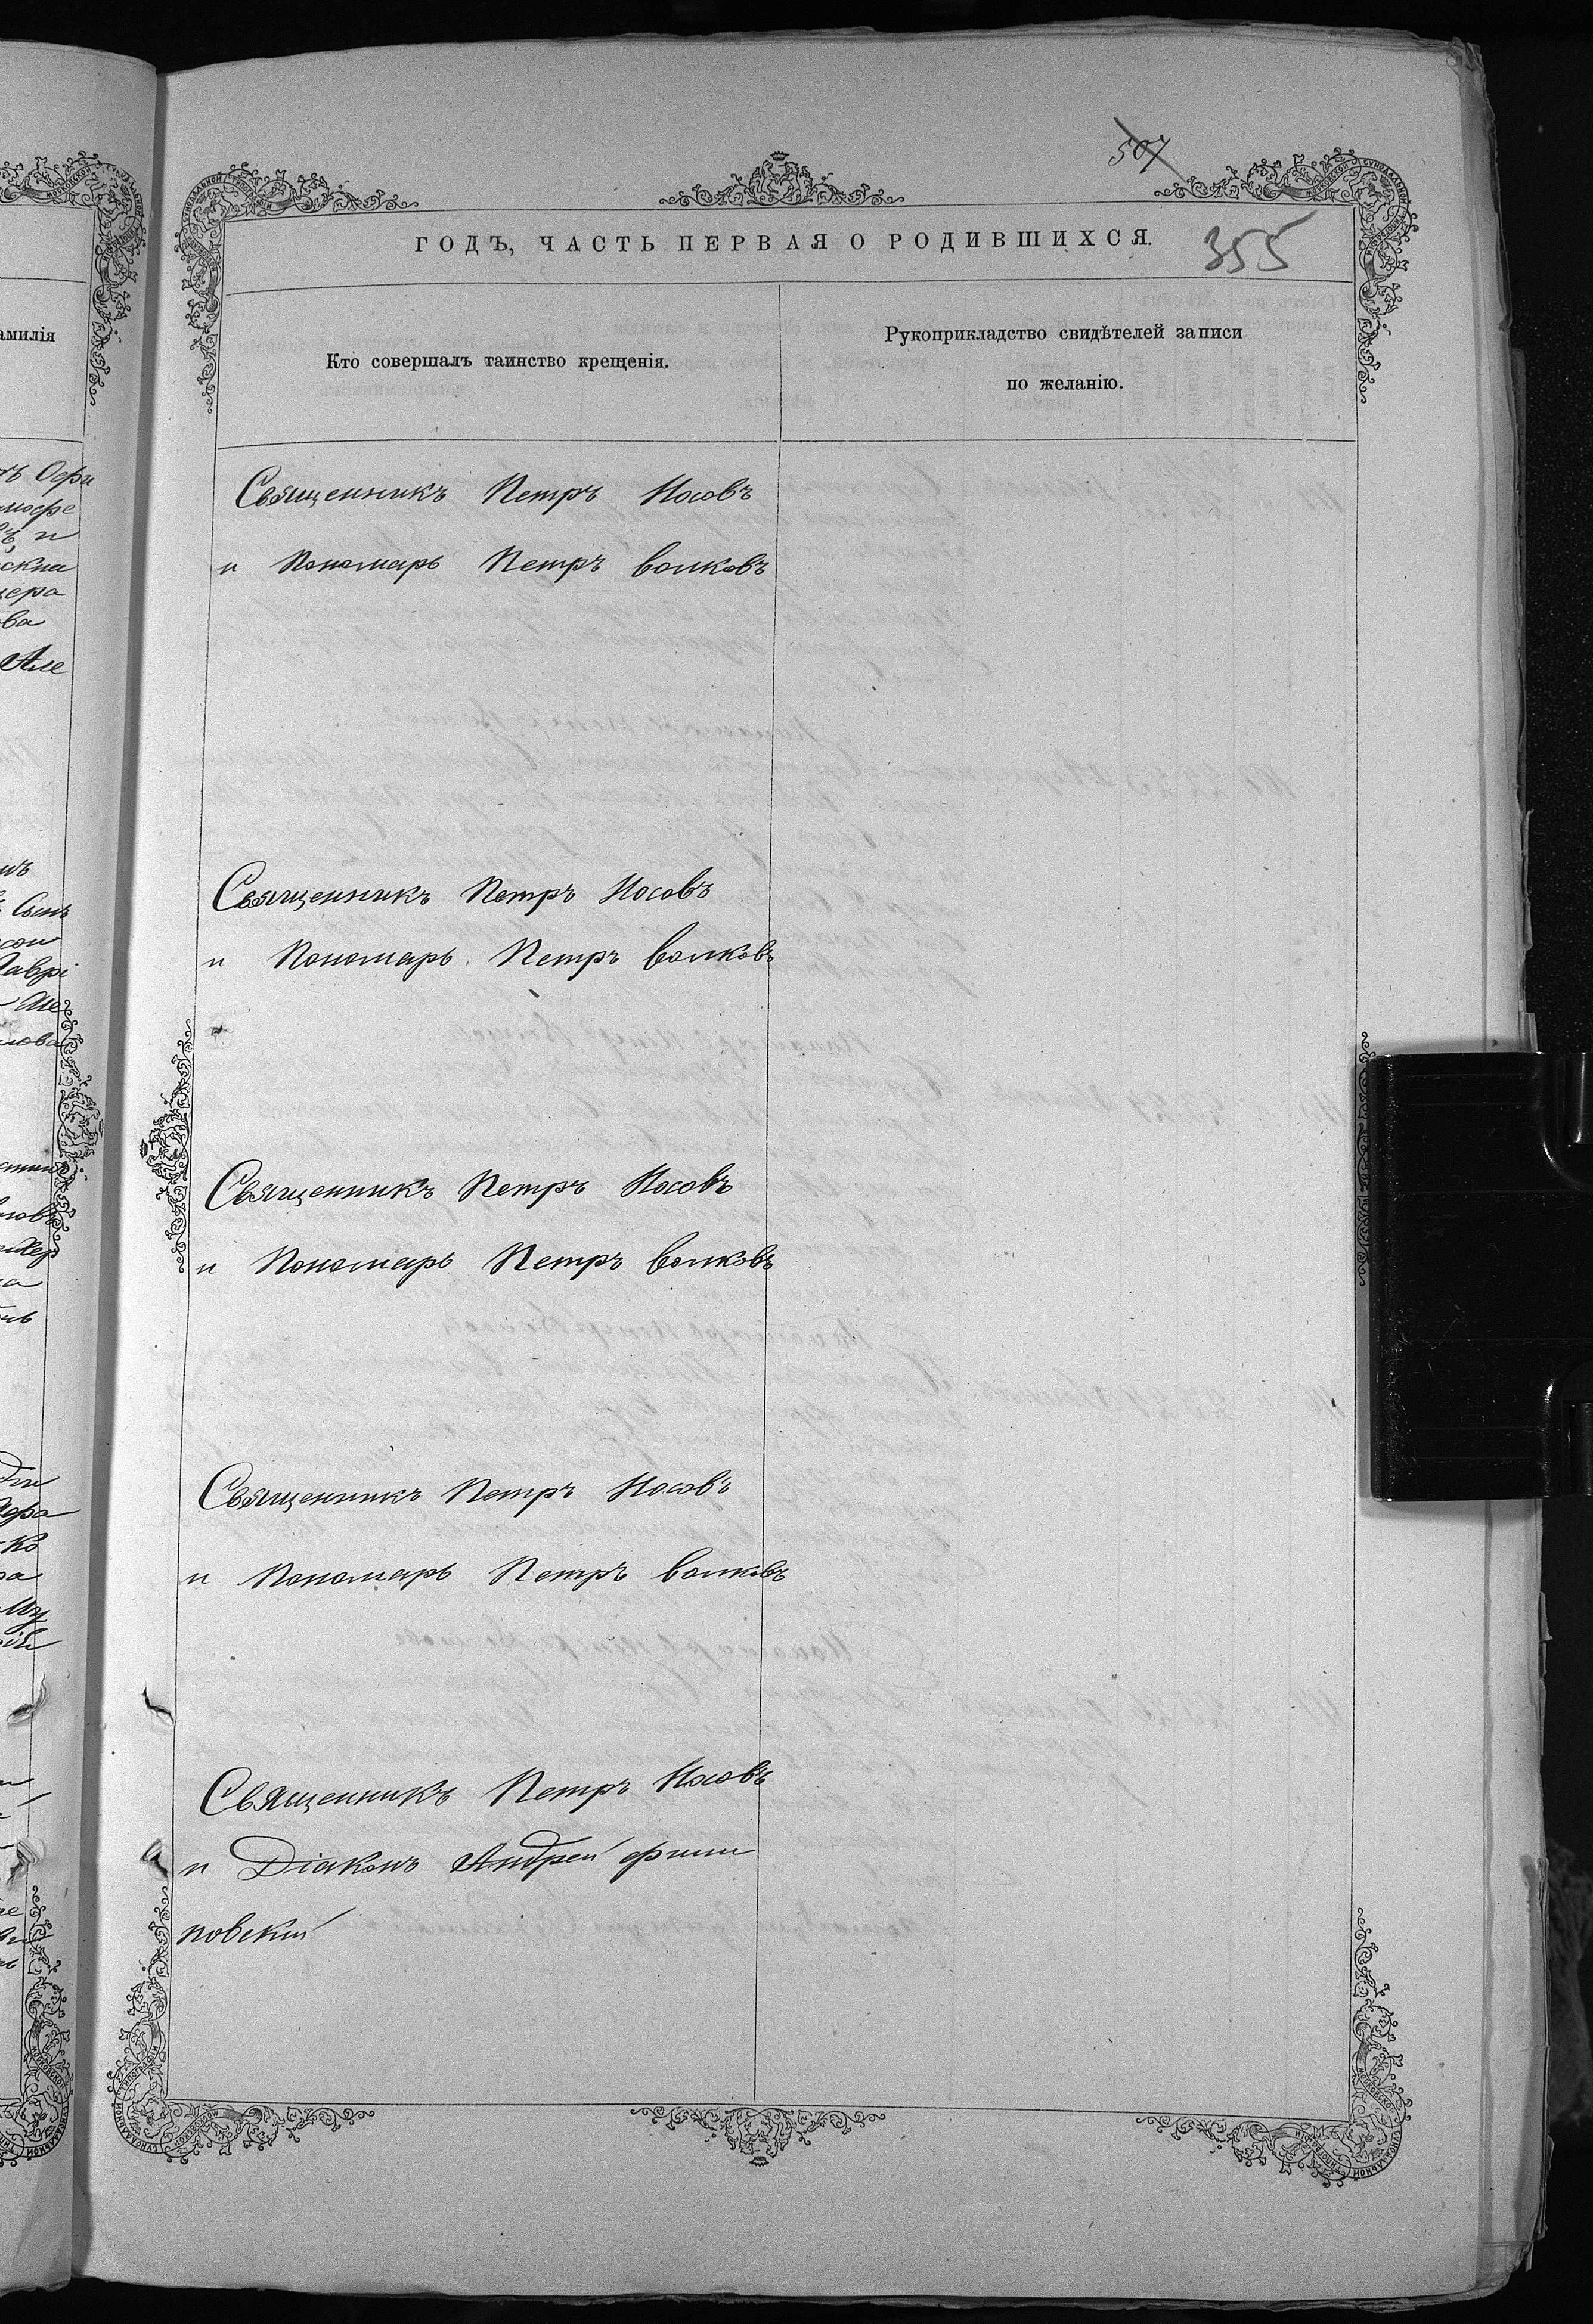 507
ГОДЪ, ЧАСТЬ ПЕРВАЯ О РОДИВШИХСЯ.
355
амилія
Кто совершалъ таинство крещенія.
Рукоприкладство свидѣтелей записи
по желанію.
Священникъ Петръ Носовъ
и Пономарь Петръ Волковъ
Священникъ Петръ Носовъ
и Пономарь Петръ Волковъ
Священникъ Петръ Носовъ
и Пономарь Петръ Волковъ
Священникъ Петръ Носовъ
и Пономарь Петръ Волковъ
Священникъ Петръ Носовъ
и Діаконъ Андрей Фили
повскій